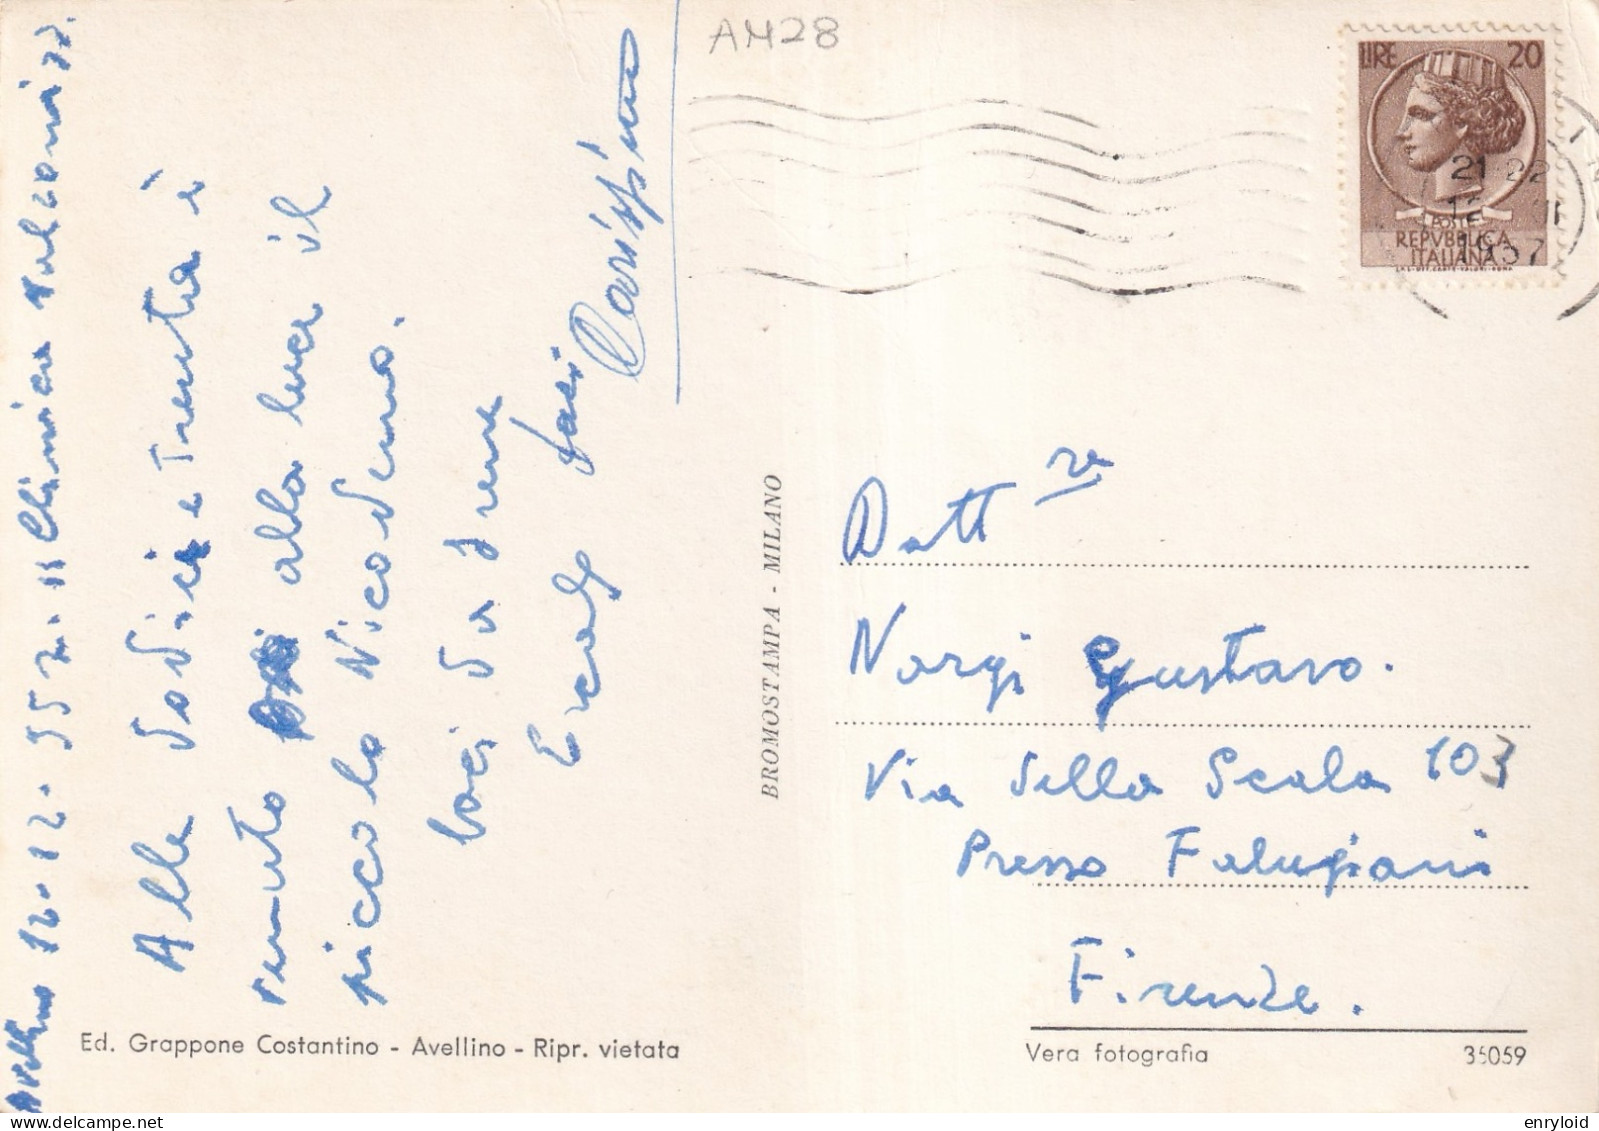 AM28
LIRE 20
POSTE
REPVBBLICA
ITALIANA
21-22
1957
Avellino 12.12.957. Clinica Malzoni
Alle dodici e Trenta è
venuto alla luce il
piccolo Nicodemo.
baci da me
Dott re
Nargi Gustavo.
Via della Scala 103
Presso Falugiani
Firenze.
BROMOSTAMPA - MILANO
Ed. Grappone Costantino - Avellino - Ripr. vietata
Vera fotografia 35059
enryloid